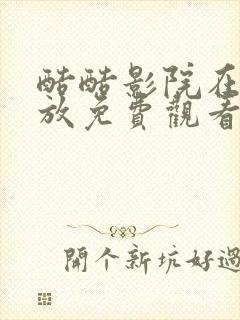 酷酷影院在
放免費觀看
開个新坑好過